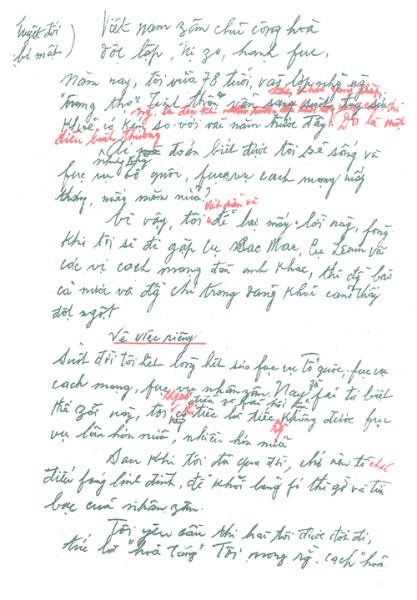 Tuyệt đối
bí mật
Việt nam zân chủ cộng hoà
độc lập, tự zo, hạnh fúc.
Năm nay, tôi vừa 78 tuổi, vào lớp những người
"trung thọ". Tinh thần vẫn sáng suốt, tuy sức
khoẻ có kém so với vài năm trước đây. Đó là một
điều bình thường
Nhưng ai đoán biết được tôi sẽ sống và
fục vụ tổ quốc, fục vụ cách mạng mấy
tháng, mấy năm nữa?
Vì vậy, tôi để lại mấy lời này, fòng
khi tôi sẽ đi gặp cụ Các Mác, cụ Lênin và
các vị cách mạng đàn anh khác, thì đồng bào
cả nước và đồng chí trong đảng khỏi cảm thấy
đột ngột.
Về việc riêng
Suốt đời tôi hết lòng hết sức fục vụ Tổ quốc, fục vụ
cách mạng, fục vụ nhân zân. Nay zù fải từ biệt
thế zới này, tôi không có điều gì fải hối hận,
chỉ tiếc là tiếc rằng không được fục
vụ lâu hơn nữa, nhiều hơn nữa
Sau khi tôi đã qua đời, chớ nên tổ chức
điếu fúng linh đình, để khỏi lãng fí thì giờ và tiền
bạc của nhân zân.
Tôi yêu cầu thi hài tôi được đốt đi,
tức là "hoả táng". Tôi mong rằng cách "hoả